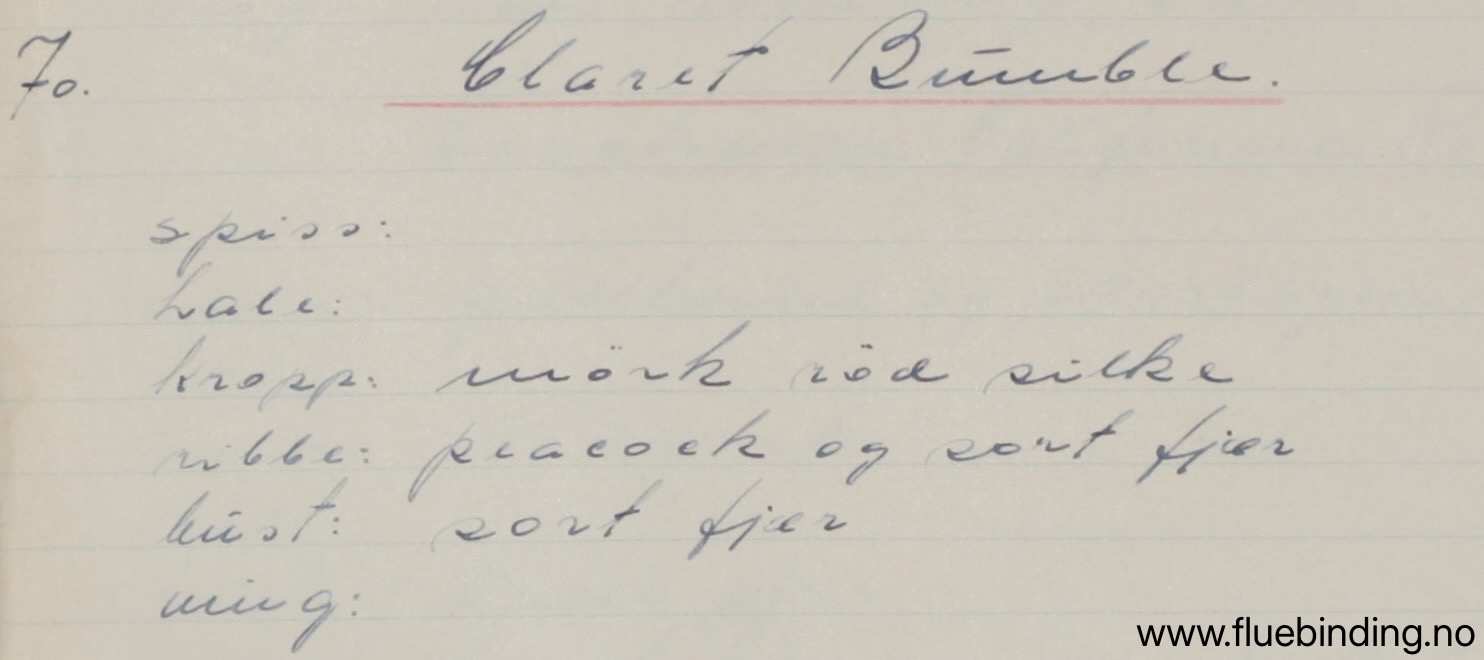 70. Claret Bumble.
spiss:
hale:
kropp: mörk röd silke
ribbe: peacock og sort fjær
bust: sort fjær
ving:
www.fluebinding.no